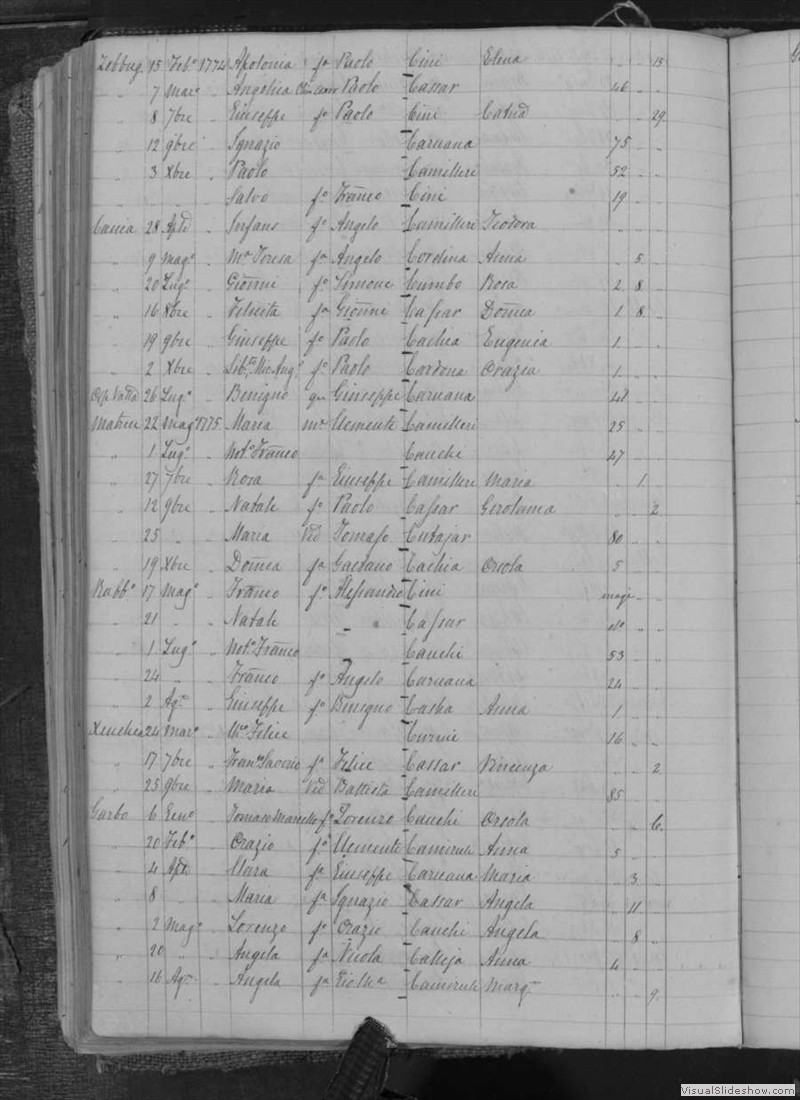 Zebbug 15 Feb° 1774 Apolonia fa Paolo Cini Elena " " 15
" 7 Mar° " Angelica Paolo Cassar 46 " "
" 8 7bre " Giuseppe f° Paolo Cini Catnd " " 29
" 12 9bre " Ignazio Caruana 75 " "
" 3 Xbre " Paolo Camilleri 52 " "
" " " Salvo f° Franco Cini 19 " "
Cacia 28 Aple " Infans f° Angelo Camilleri Teodora " " "
" 9 Mag° " Ma Teresa fa Angelo Cordina Anna " 5 "
" 20 Lug° " Gionni f° Simone Cumbo Rosa 2 8 "
" 16 8bre " Felicita fa Gionni Caſsar Domca 1 8 "
" 19 9bre " Giuseppe f° Paolo Cachia Eugenia 1 " "
" 2 Xbre " f° Paolo Cardona Orazia 1 " "
26 Lug° " Benigno qm Giuseppe Caruana 41 " "
Matrice 22 Mag° 1775 Maria mr Clemente Camilleri 25 " "
" 1 Lug° " Not° Franco Cauchi 47 " "
" 27 7bre " Rosa fa Giuseppe Camilleri Maria " 1 "
" 12 9bre " Natale f° Paolo Caſsar Gerolama " " 2
" 25 " " Maria Vid Tomaso Cutajar 80 " "
" 19 Xbre " Domca fa Gaetano Cachia Orsola 5 " "
Rabb° 17 Mag° " Franco f° Alessandro Cini " "
" 21 " " Natale " Caſsar " "
" 1 Lug° " Not° Franco Cauchi 53 " "
" 24 " " Franco f° Angelo Caruana 24 " "
" 2 Ag° " Giuseppe f° Benigno Casha Anna 1 " "
Xeuchea 24 Mar° " Felice Curmi 16 " "
" 17 7bre " Franco Saverio f° Felice Cassar Vincenza " " 2
" 25 9bre " Maria Vid Battista Camilleri 85 " "
Garbo 6 Een° " Tomaso Marcello f° Lorenzo Cauchi Orsola " " 6
" 20 Feb° " Orazio f° Clemente Camenule Anna 5 " "
" 4 Aple " Clara fa Giuseppe Caruana Maria " 3 "
" 8 " " Maria fa Ignazio Cassar Angela " 11 "
" 2 Mag° " Lorenzo f° Orazio Cauchi Angela " 8 "
" 20 " " Angela fa Nicola Calleja Anna 4 " "
" 16 Ag° " Angela fa Camenule Marg " " 9
VisualSlideshow.com